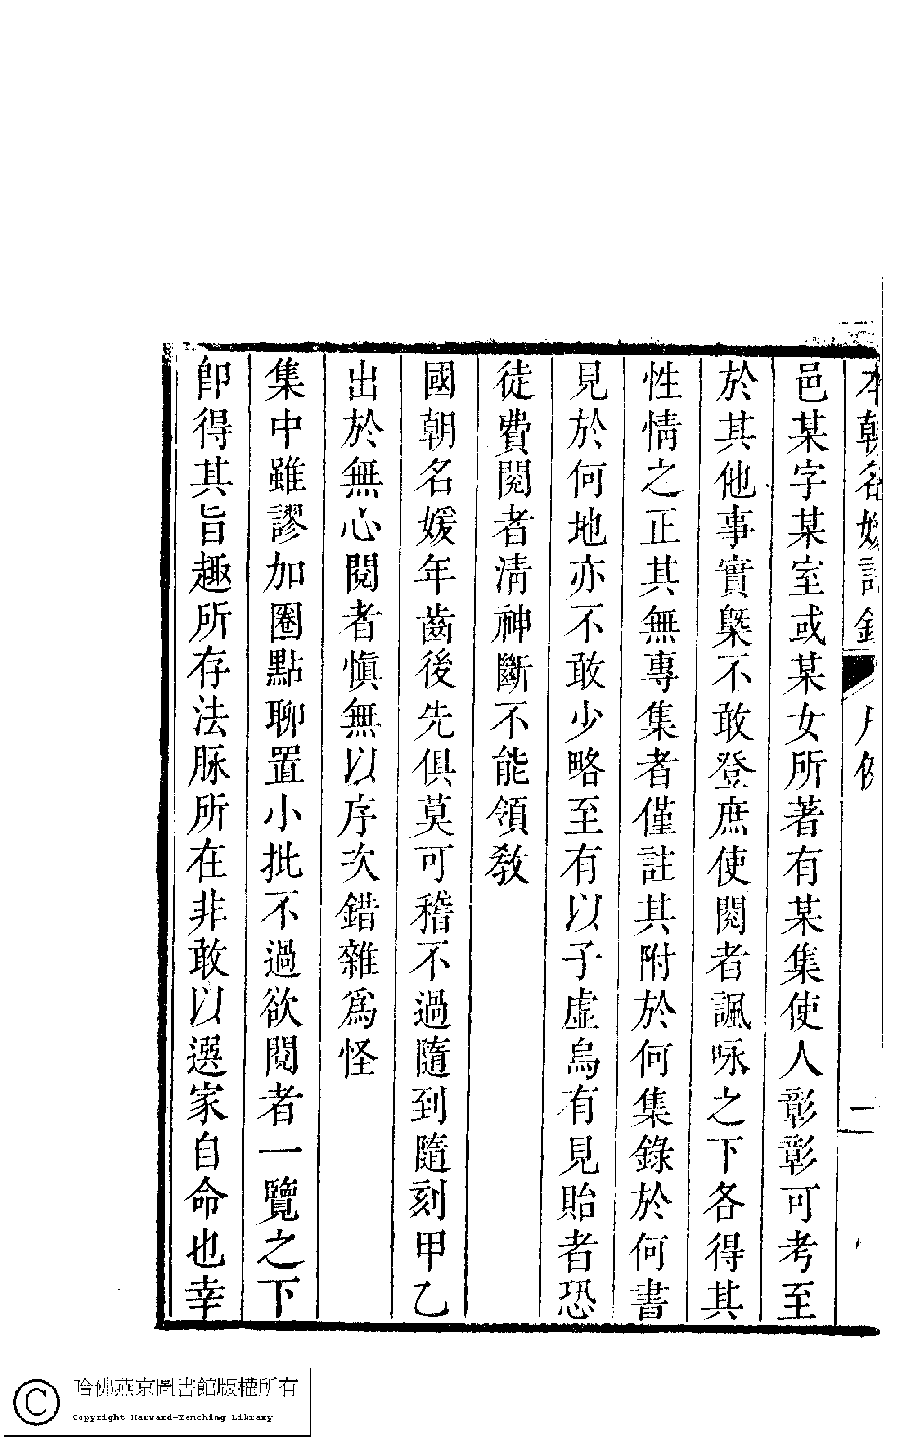 本朝名媛詩鈔 凡例 二
邑某字某室或某女所著有某集使人彰彰可考至
於其他事實槩不敢登庶使閱者諷咏之下各得其
性情之正其無專集者僅註其附於何集錄於何書
見於何地亦不敢少略至有以子虛烏有見貽者恐
徒費閱者清神斷不能領教
國朝名媛年齒後先俱莫可稽不過隨到隨刻甲乙
出於無心閱者愼無以序次錯雜爲怪
集中雖謬加圈點聊置小批不過欲閱者一覽之下
卽得其旨趣所存法脉所在非敢以選家自命也幸
哈佛燕京圖書館版權所有
Copyright Harvard-Yenching Library